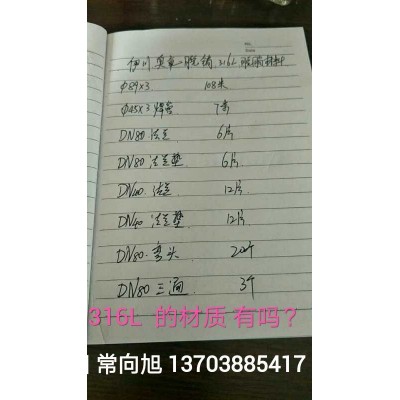 伊川 脱硝 316L 材料
Φ89×3 108米
Φ45×3 焊管 7米
DN80 法兰 6片
DN80 法兰垫 6片
DN40 法兰 12片
DN40 法兰垫 12片
DN80 弯头 20个
DN80 三通 3个
316L 的材质 有吗?
常向旭 13703885417